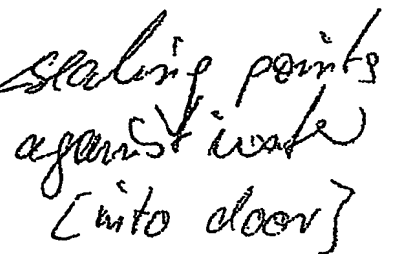 sealing points
against water
[into door]